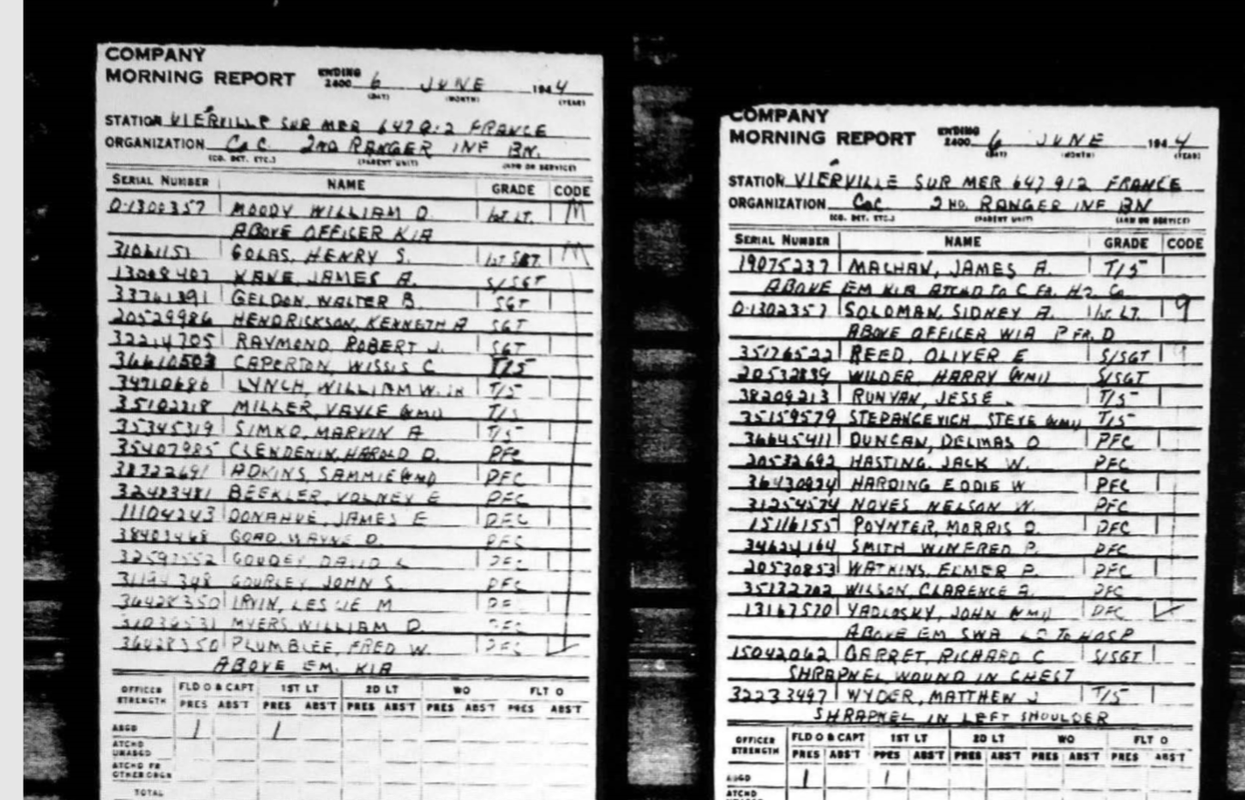 COMPANY
MORNING REPORT ENDING 2400 6 JUNE 1944
(DAY) (MONTH) (YEAR)
STATION VIERVILLE SUR MER 647912 FRANCE
ORGANIZATION Co C. 2ND RANGER INF BN.
(CO. DET. ETC.) (PARENT UNIT) (ARM OR SERVICE)
SERIAL NUMBER NAME GRADE CODE
0-1300357 MOODY WILLIAM D. 1st LT. M
ABOVE OFFICER KIA
31061151 GOLAS, HENRY S. 1st SGT. M
13008407 KANE, JAMES A. S/SGT
33761391 GELDON, WALTER B. SGT
20529986 HENDRICKSON, KENNETH A SGT
32214705 RAYMOND, ROBERT J. SGT
36610503 CAPERTON, WISSIS C T/5
34710686 LYNCH, WILLIAM W. JR T/5
35102318 MILLER, VAYLE (NMI) T/5
35345319 SIMKO, MARVIN A T/5
35407985 CLENDENIN, HAROLD D. PFC
38322691 ADKINS, SAMMIE PFC
32483481 BEEKLER, VOLNEY E PFC
11104243 DONAHUE, JAMES E PFC
38403468 GOAD, WAYNE D. PFC
32597552 GOUDEY DAVID L PFC
GOURLEY JOHN S. PFC
36428350 IRVIN, LESLIE M PFC
MYERS WILLIAM D. PFC
36428350 PLUMBLEE, FRED W. PFC
ABOVE EM. KIA
OFFICER STRENGTH FLD O & CAPT 1ST LT 2D LT WO FLT O
PRES ABS'T PRES ABS'T PRES ABS'T PRES ABS'T PRES ABS'T
ASGD 1 1
ATCHD UNASGD
ATCHD FR OTHER ORGN
TOTAL
COMPANY
MORNING REPORT ENDING 2400 6 JUNE 1944
(DAY) (MONTH) (YEAR)
STATION VIERVILLE SUR MER 647912 FRANCE
ORGANIZATION Co C. 2ND. RANGER INF BN
(CO. DET. ETC.) (PARENT UNIT) (ARM OR SERVICE)
SERIAL NUMBER NAME GRADE CODE
19075237 MACHAN, JAMES A. T/5
ABOVE EM KIA ATCHD TO C FR. HQ Co
0-1302357 SOLOMAN, SIDNEY A. 1st. LT. 9
ABOVE OFFICER WIA P FR. D
35176522 REED, OLIVER E S/SGT 9
20532839 WILDER, HARRY (NMI) S/SGT
38209213 RUNYAN, JESSE. T/5
35159579 STEPANCEVICH, STEVE (NMI) T/5
36645411 DUNCAN, DELMAS O PFC
20532692 HASTING, JACK W. PFC
36430974 HARDING EDDIE W PFC
31254574 NOYES NELSON W. PFC
15116155 POYNTER, MORRIS D. PFC
34624164 SMITH WINFRED P. PFC
20530853 WATKINS, ELMER P. PFC
35132702 WILSON, CLARENCE A. PFC
13167570 YADLOSKY, JOHN (NMI) PFC
ABOVE EM SWA LD TO HOSP
15042062 GARRET, RICHARD C S/SGT
SHRAPNEL WOUND IN CHEST
32233497 WYDER, MATTHEW J T/5
SHRAPNEL IN LEFT SHOULDER
OFFICER STRENGTH FLD O & CAPT 1ST LT 2D LT WO FLT O
PRES ABS'T PRES ABS'T PRES ABS'T PRES ABS'T PRES ABS'T
ASGD 1 1
ATCHD